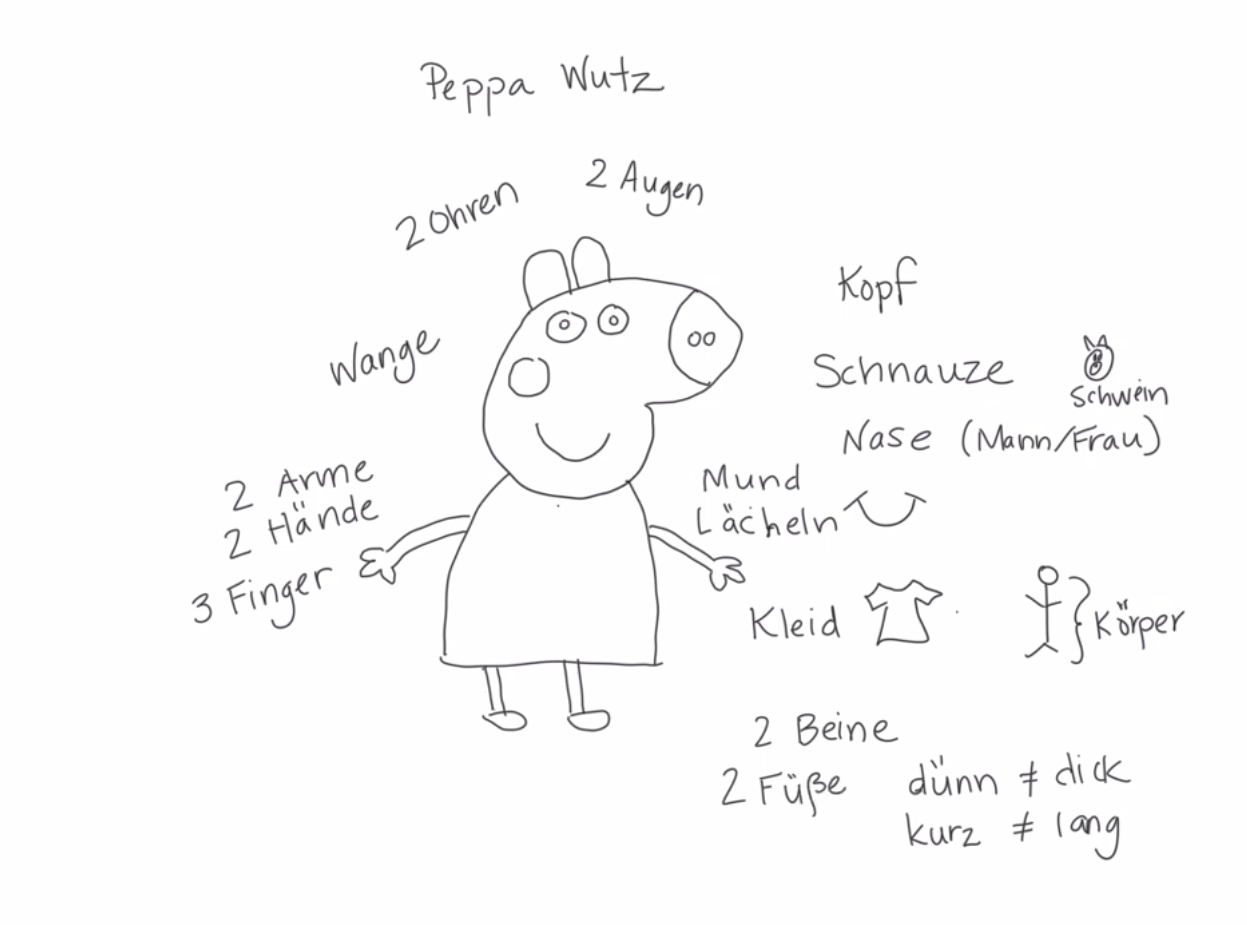 Peppa Wutz
2 Augen
2 Ohren
Kopf
Wange
Schnauze
Schwein
Nase (Mann/Frau)
2 Arme
2 Hände
3 Finger
Mund
Lächeln
Kleid
Körper
2 Beine
2 Füße
dünn ≠ dick
kurz ≠ lang